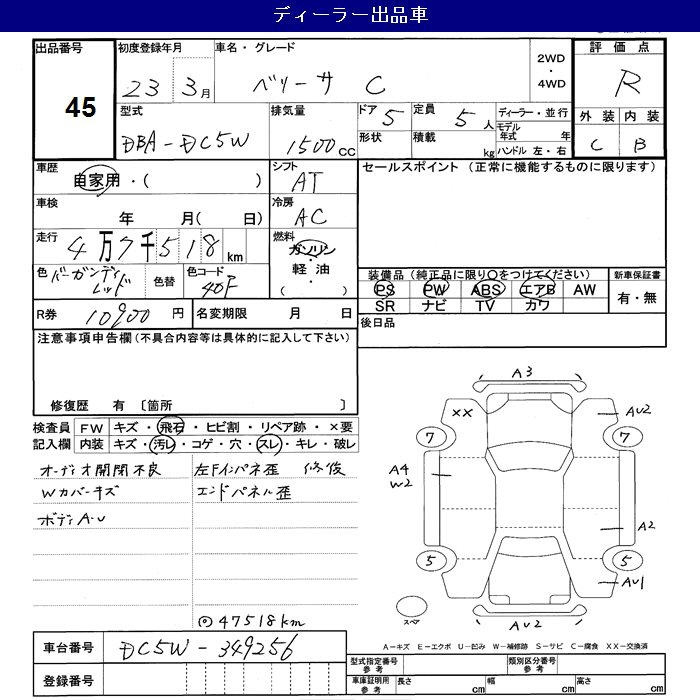 ディーラー出品車
出品番号 初度登録年月 車名・グレード 2WD ・ 4WD 評価点
45 23 3月 ベリーサ C R
型式 排気量 ドア 5 定員 5人 ディーラー・並行
DBA-DC5W 1500cc 形状 積載 kg モデル年式 年 外装 内装
ハンドル 左・右 C B
車歴 自家用・( ) シフト AT セールスポイント (正常に機能するものに限ります)
車検 年 月( 日) 冷房 AC
走行 4万7千518km 燃料 ガソリン
軽・油
・( )
色 バーガンディレッド 色替 色コード 40F
装備品 (純正品に限り○をつけてください) 新車保証書
PS PW ABS エアB AW 有・無
SR ナビ TV カワ
R券 10900円 名変期限 月 日 後日品
注意事項申告欄(不具合内容等は具体的に記入して下さい)
修復歴 有 〔箇所 〕
検査員 FW キズ・飛石・ヒビ割・リペア跡・×要
記入欄 内装 キズ・汚レ・コゲ・穴・スレ・キレ・破レ
オーディオ開閉不良 左Fインパネ歪 修復
Wカバーキズ エンドパネル歪
ボディA・U
◎47518km
A3
XX AU2
7 7
A4
W2
A2
5 5
AU1
スペア AU2
A-キズ E-エクボ U-凹み W-補修跡 S-サビ C-腐食 XX-交換済
車台番号 DC5W-349256
型式指定番号 参考 類別区分番号 参考
登録番号 車庫証明用 参考 長さ cm 幅 cm 高さ cm